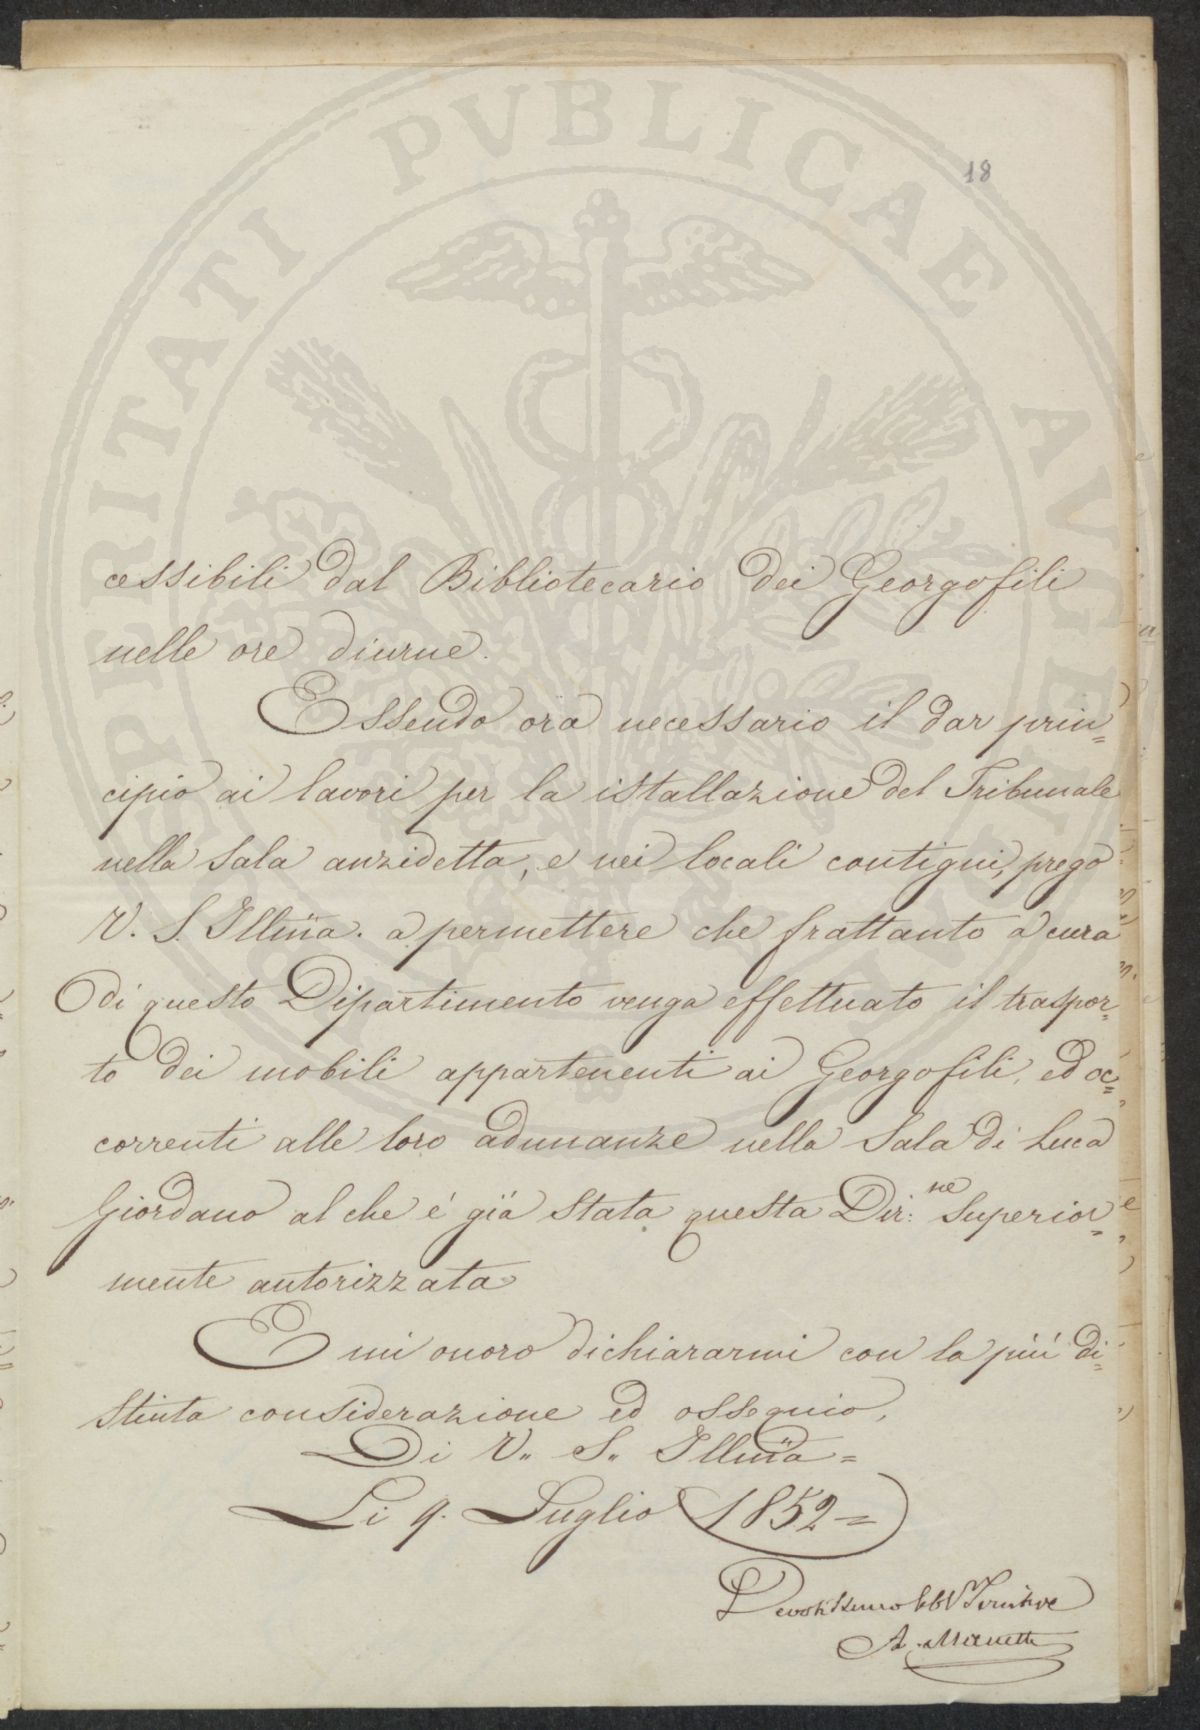 PROSPERITATI PVBLICAE AVGENDAE
18
cessibili dal Bibliotecario dei Georgofili
nelle ore diurne.
Essendo ora necessario il dar prin=
cipio ai lavori per la istallazione del Tribunale
nella Sala anzidetta, e nei locali contigui, prego
V. S. Illma. a permettere che frattanto a cura
di questo Dipartimento venga effettuato il traspor=
to dei mobili appartenenti ai Georgofili, ed oc=
correnti alle loro adunanze nella Sala di Luca
Giordano al che é giá stata questa Dir:ne Superior=
mente autorizzata
E mi onoro dichiararmi con la piú di=
stinta considerazione ed ossequio,
Di V„ S„ Illma =
Li 9. Luglio 1852 =
Devotissimo Obb Servitore
A. Manetti